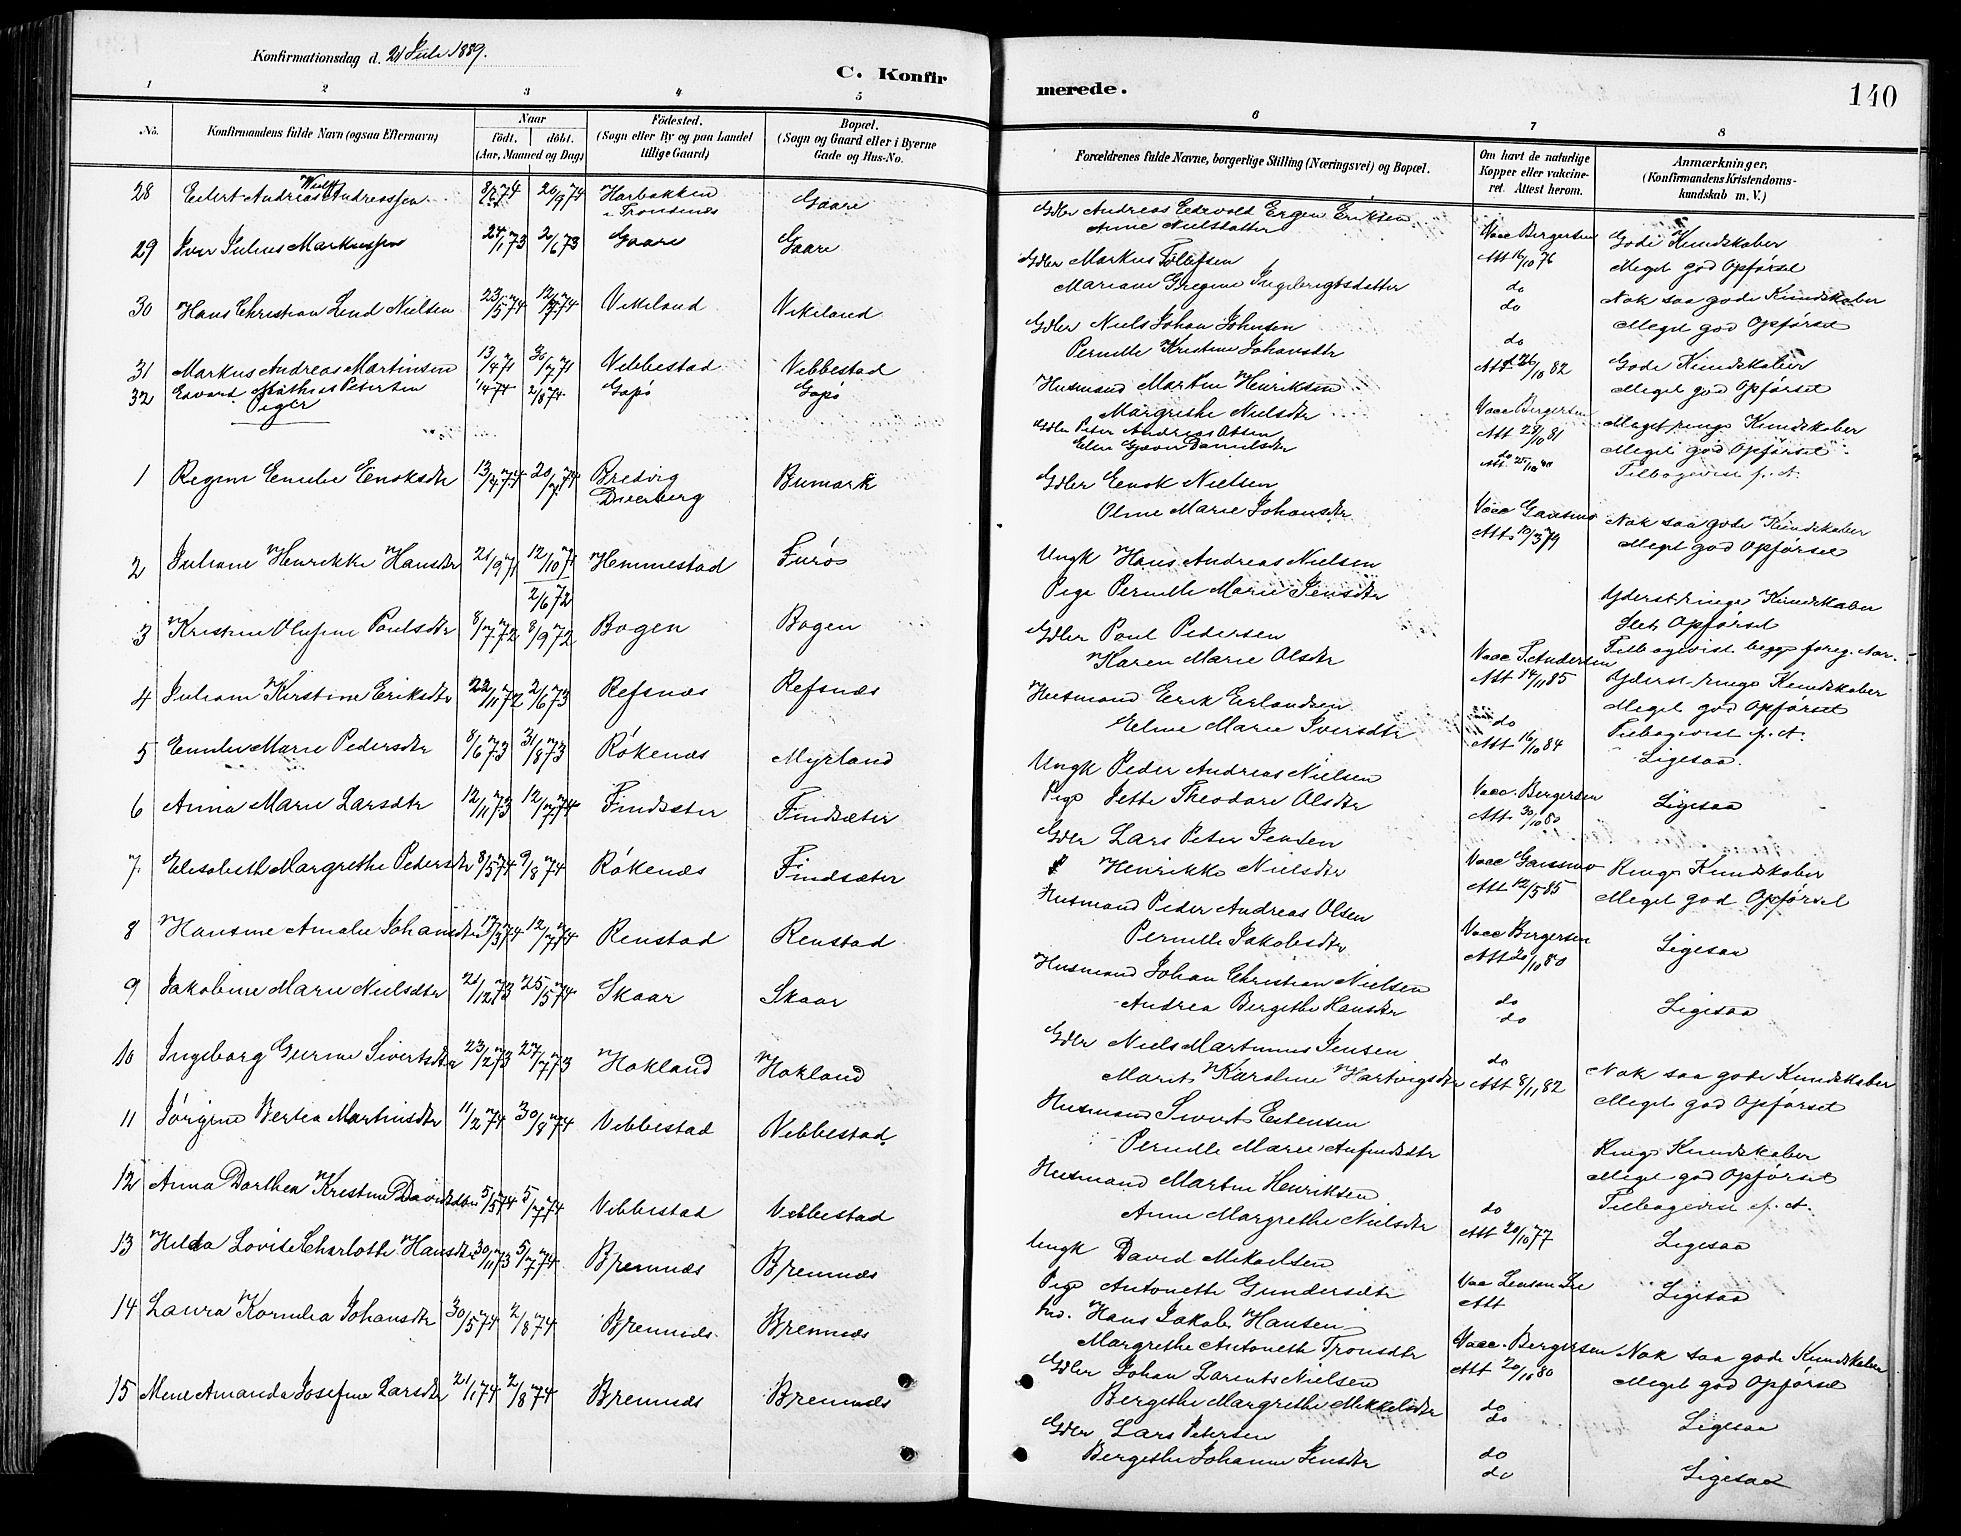 Konfirmationsdag d. 21 Juli 1889.
C. Konfirmerede.
140
1 2 3 4 5 6 7 8
No.
Konfirmandens fulde Navn (ogsaa Efternavn)
Naar
födt. döbt.
(Aar, Maaned og Dag)
Födested.
(Sogn eller By og paa Landet
tillige Gaard)
Bopæl.
(Sogn og Gaard eller i Byerne
Gade og Hus-No.
Forældrenes fulde Navne, borgerlige Stilling (Næringsvei) og Bopæl.
Om havt de naturlige
Kopper eller vakcine-
ret. Attest herom.
Anmærkninger,
(Konfirmandens Kristendoms-
kundskab m. V.)
28 Edert Andreas Andreassen 20/9 74 Harbakken i Trondenes Gaare
Gdler Andreas Edevold Ergen Eriksen
Anne Nielsdatter
Vacc Bergersen
Att 16/10 76
Gode Kundskaber
Meget god Opførsel
29 Iver Julius Markussen 24/1 73 2/6 73 Gaare Gaare
Gdler Markus Tollefsen
Mariane Gregine Ingebrigtsdatter
do
do
Nok saa gode Kundskaber
Meget god Opførsel
30 Hans Christian Lind Nielsen 23/5 74 12/7 74 Vikeland Vikeland
Gdler Niels Johan Johnsen
Pernille Kristine Johansdtr
do
Att 26/10 82
Gode Kundskaber
Meget god Opførsel
31 Markus Andreas Martinsen 13/4 71 30/7 71 Vebbestad Vebbestad
Husmand Martin Henriksen
Margrethe Nielsdtr
Vacc Bergersen
Att 28/10 81
Meget ringe Kundskaber
Meget god Opførsel
Tilbagevist f. A.
32 Edvard Mathias Petersen 1/4 74 2/8 74 Gapø Gapø
Gdler Peter Andreas Olsen
do
Piger
1 Regine Emilie Enoksdtr 13/4 74 20/7 74 Bredvig Dverberg Bumark
Gdler Enok Nielsen
Oline Marie Johansdtr
Vacc Gausmo
Att 10/3 79
Nok saa gode Kundskaber
Meget god Opførsel
2 Juliane Henrikke Hansdtr 21/9 71 12/10 71 2/6 72 Hemmestad Furøs
Ungk Hans Andreas Nielsen
Pige Pernille Marie Jensdtr
Yderst ringe Kundskaber
Slet Opførsel
Tilbagevist begge foreg. Aar.
3 Kristine Olufine Poulsdtr 8/7 72 8/9 72 Bogen Bogen
Gdler Poul Pedersen
Karen Marie Olsdtr
Vacc T. Andersen
Att 14/11 85
Yderst ringe Kundskaber
Meget god Opførsel
Tilbagevist f. A.
4 Juliane Kirstine Eriksdtr 22/11 72 2/6 73 Refsnæs Refsnæs
Husmand Erik Erlandsen
Eline Marie Iversdtr
do
Att 16/10 84
Ligesaa.
5 Emilie Marie Pedersdtr 8/6 73 31/8 73 Røkenæs Myrland
Ungk Peder Andreas Nielsen
Pige Jette Theodore Olsdtr
Vacc. Bergersen
Att 30/10 80
Ligesaa
6 Anna Marie Larsdtr 12/11 73 12/7 74 Findsæter Findsæter
Gdler Lars Peter Jensen
Henrikke Nielsdtr
Vacc Gausmo
Att 12/5 85
Ringe Kundskaber
Meget god Opførsel
7. Elisabeth Margrethe Pedersdtr 8/5 74 9/8 74 Røkenæs Findsæter
Husmand Peder Andreas Olsen
Pernille Jakobsdtr
Vacc Bergersen
Att 20/10 80
Ligesaa
8 Hansine Amalie Johansdtr 17/3 74 12/7 74 Renstad Renstad
Husmand Johan Christian Nielsen
Andrea Bergithe Hansdtr
do
do
Ligesaa
9 Jakobine Marie Nielsdtr 21/12 73 25/5 74 Skaar Skaar
Gdler Niels Martinus Jensen
Marit Karoline Hartvigsdtr
do
Att 8/11 82
Nok saa gode Kundskaber
Meget god Opførsel
10 Ingeborg Gurine Sivertsdtr 23/2 73 27/7 73 Hokland Hokland
Husmand Sivert Estensen
Pernille Marie Anfindsdtr
Ringe Kundskaber
Meget god Opførsel
Tilbagevist f. A.
11 Jørgine Bertea Martinsdtr 11/2 74 30/8 74 Vebbestad Vebbestad
Husmand Martin Henriksen
Anne Margrethe Nielsdtr
do
Att 20/10 77
Ligesaa
12 Anna Dorthea Kristine Davidsdtr 5/5 74 5/7 74 Vebbestad Vebbestad
Ungk David Mikaelsen
Pige Antonette Gundersdtr
Att
Ligesaa
13 Hilda Lovise Charlotte Hansdtr 30/11 73 5/7 74 Bremnæs Bremnæs
Ind. Hans Jakob Hansen
Margrethe Antoneth Tronsdtr
Vacc. Bergersen
Att 20/10 80
Nok saa gode Kundskaber
Meget god Opførsel
14 Laura Kornelia Johansdtr 30/5 74 2/8 74 Bremnæs Bremnæs
Gdler Johan Larents Nielsen
Bergithe Margrethe Mikkelsdtr
do
do
Ligesaa
15 Mene Amanda Josefine Larsdtr 21/1 74 2/8 74 Bremnæs Bremnæs
Gdler Lars Petersen
Bergithe Johanne Jensdtr
do
do
Ligesaa